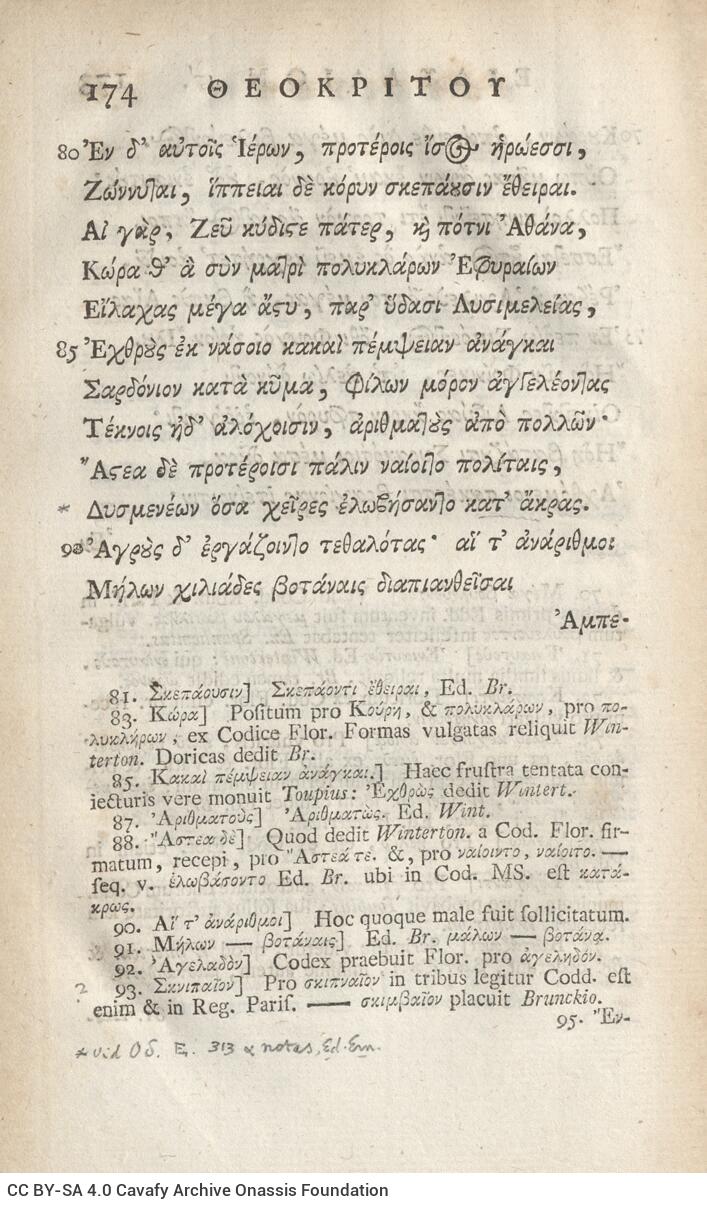 174 ΘΕΟΚΡΙΤΟΥ
80 Ἐν δ' αὐτοῖς Ἱέρων, προτέροις ἴσος ἡρώεσσι,
Ζώννυται, ἵππειαι δὲ κόρυν σκεπάουσιν ἔθειραι.
Αἲ γὰρ, Ζεῦ κύδιστε πάτερ, καὶ πότνι' Ἀθάνα,
Κώρα θ' ἃ σὺν ματρὶ πολυκλάρων Ἐφυραίων
Εἴλαχας μέγα ἄστυ, παρ' ὕδασι Λυσιμελείας,
85 Ἐχθροὺς ἐκ νάσοιο κακαὶ πέμψειαν ἀνάγκαι
Σαρδόνιον κατὰ κῦμα, φίλων μόρον ἀγγελέοντας
Τέκνοις ἠδ' ἀλόχοισιν, ἀριθματοὺς ἀπὸ πολλῶν·
Ἄστεα δὲ προτέροισι πάλιν ναίοιτο πολίταις,
* Δυσμενέων ὅσα χεῖρες ἐλωβήσαντο κατ' ἄκρας.
90 Ἀγροὺς δ' ἐργάζοιντο τεθαλότας· αἵ τ' ἀνάριθμοι
Μήλων χιλιάδες βοτάναις διαπιανθεῖσαι
Ἀμπε-
81. Σκεπάουσιν] Σκεπάοντι ἔθειραι, Ed. Br.
83. Κώρα] Positum pro Κούρη, & πολυκλάρων, pro πο-
λυκλήρων, ex Codice Flor. Formas vulgatas reliquit Win-
terton. Doricas dedit Br.
85. Κακαὶ πέμψειαν ἀνάγκαι.] Haec frustra tentata con-
iecturis vere monuit Toupius: Ἐχθρὼς dedit Wintert.
87. Ἀριθματοὺς] Ἀριθματὼς. Ed. Wint.
88. Ἄστεα δὲ] Quod dedit Winterton. a Cod. Flor. fir-
matum, recepi, pro Ἄστεά τε. &, pro ναίοιντο, ναίοιτο. —
seq. v. ἐλωβάσοντο Ed. Br. ubi in Cod. MS. est κατά-
κρως.
90. Αἵ τ' ἀνάριθμοι] Hoc quoque male fuit sollicitatum.
91. Μήλων — βοτάναις] Ed. Br. μάλων — βοτάνα.
92. Ἀγελαδὸν] Codex praebuit Flor. pro ἀγεληδόν.
2 93. Σκνιπαῖον] Pro σκιπναῖον in tribus legitur Codd. est
enim & in Reg. Paris. — σκιμβαῖον placuit Brunckio.
95. Ἐν-
* vid Οδ. Ξ. 313 & notas, Ed. Ern.
CC BY-SA 4.0 Cavafy Archive Onassis Foundation